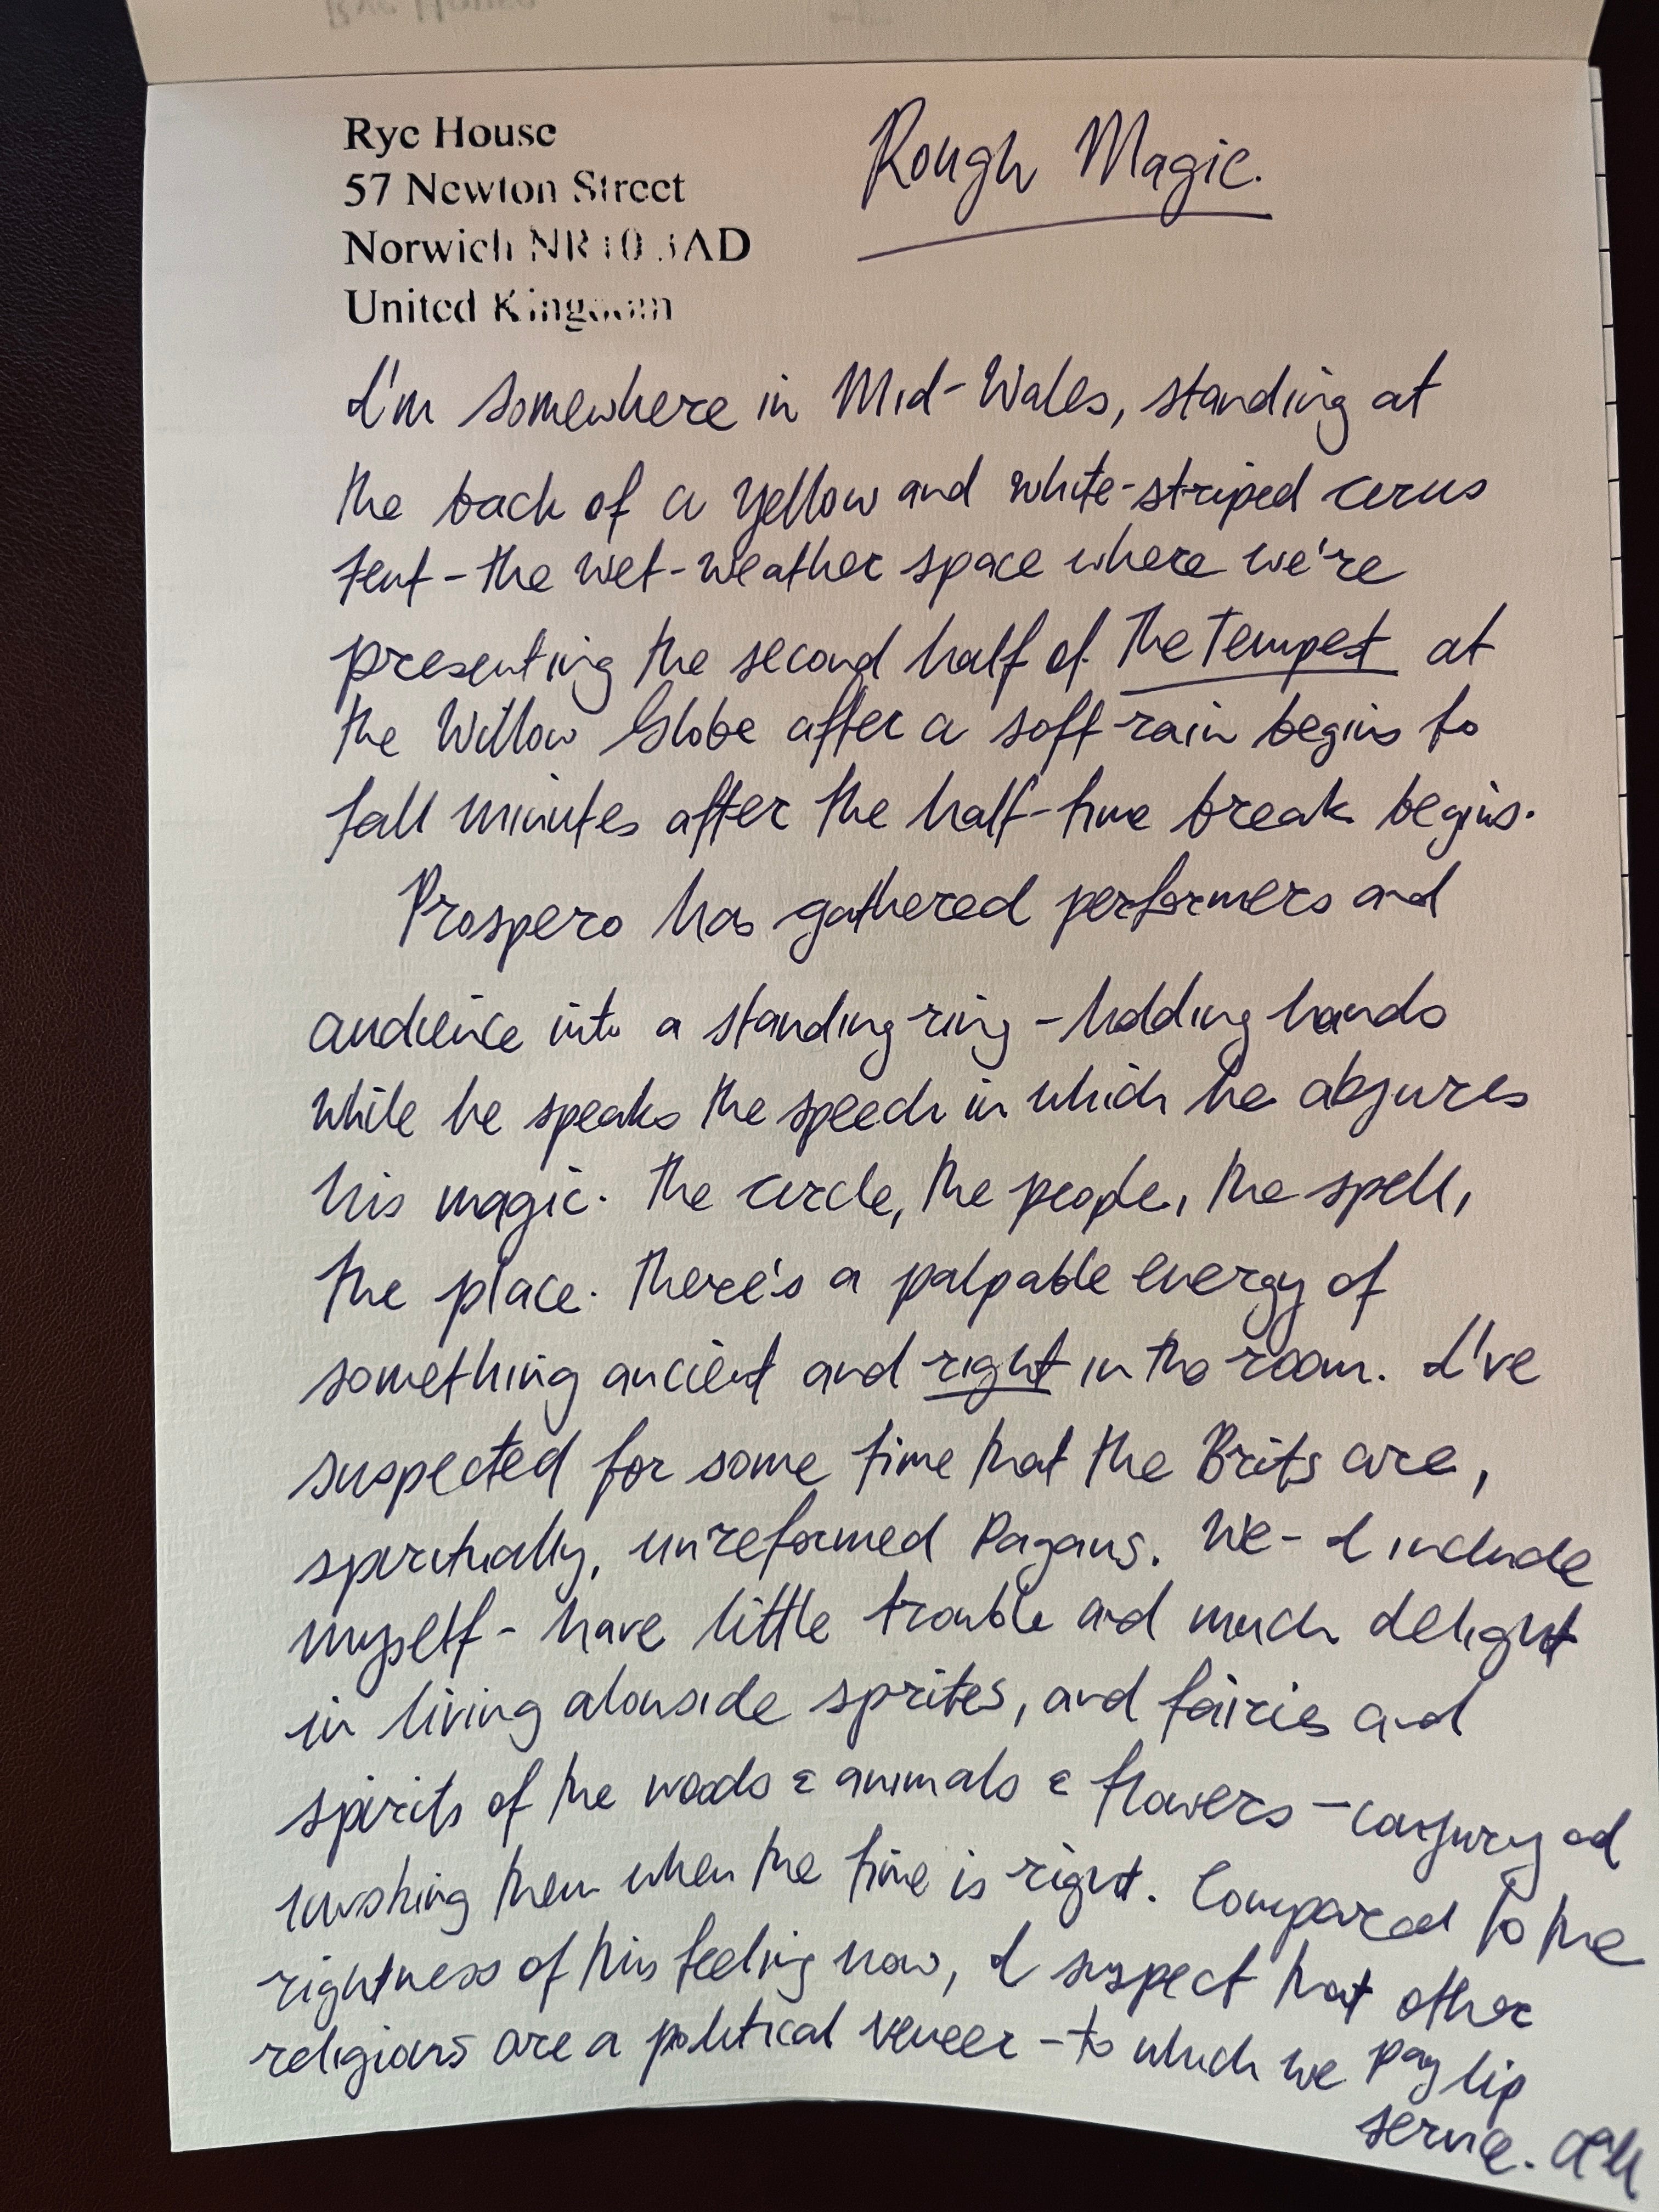 Rye House
57 Newton Street
Norwich NR10 3AD
United Kingdom
Rough Magic.
I'm somewhere in Mid-Wales, standing at
the back of a yellow and white-striped circus
tent - the wet-weather space where we're
presenting the second half of The Tempest at
the Willow Globe after a soft rain begins to
fall minutes after the half-time break begins.
Prospero has gathered performers and
audience into a standing ring - holding hands
while he speaks the speech in which he abjures
his magic. The circle, the people, the spell,
the place. There's a palpable energy of
something ancient and right in the room. I've
suspected for some time that the Brits are,
spiritually, unreformed Pagans. We - I include
myself - have little trouble and much delight
in living alonside sprites, and fairies and
spirits of the woods & animals & flowers - conjuring and
invoking them when the time is right. Compared to the
rightness of this feeling now, I suspect that other
religions are a political veneer - to which we pay lip
service.